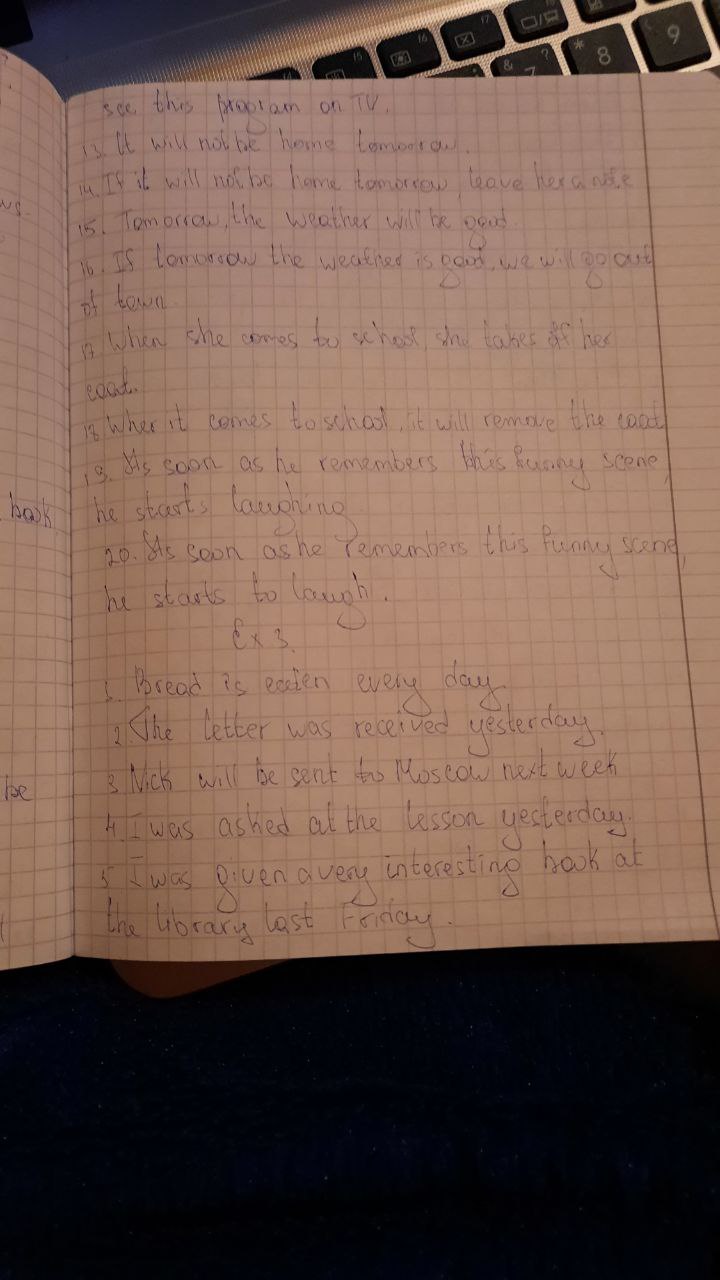 see this program on TV.
13. It will not be home tomorrow.
14. If it will not be home tomorrow, leave her a note
15. Tomorrow, the weather will be good.
16. If tomorrow the weather is good, we will go out
of town
17. When she comes to school, she takes off her
coat.
18. When it comes to school, it will remove the coat
19. As soon as he remembers this funny scene,
he starts laughing
20. As soon as he remembers this funny scene,
he starts to laugh.
Ex 3.
1. Bread is eaten every day.
2. The letter was received yesterday.
3 Nick will be sent to Moscow next week
4. I was asked at the lesson yesterday.
5 I was given a very interesting book at
the library last Friday.
book
be
7
8
9